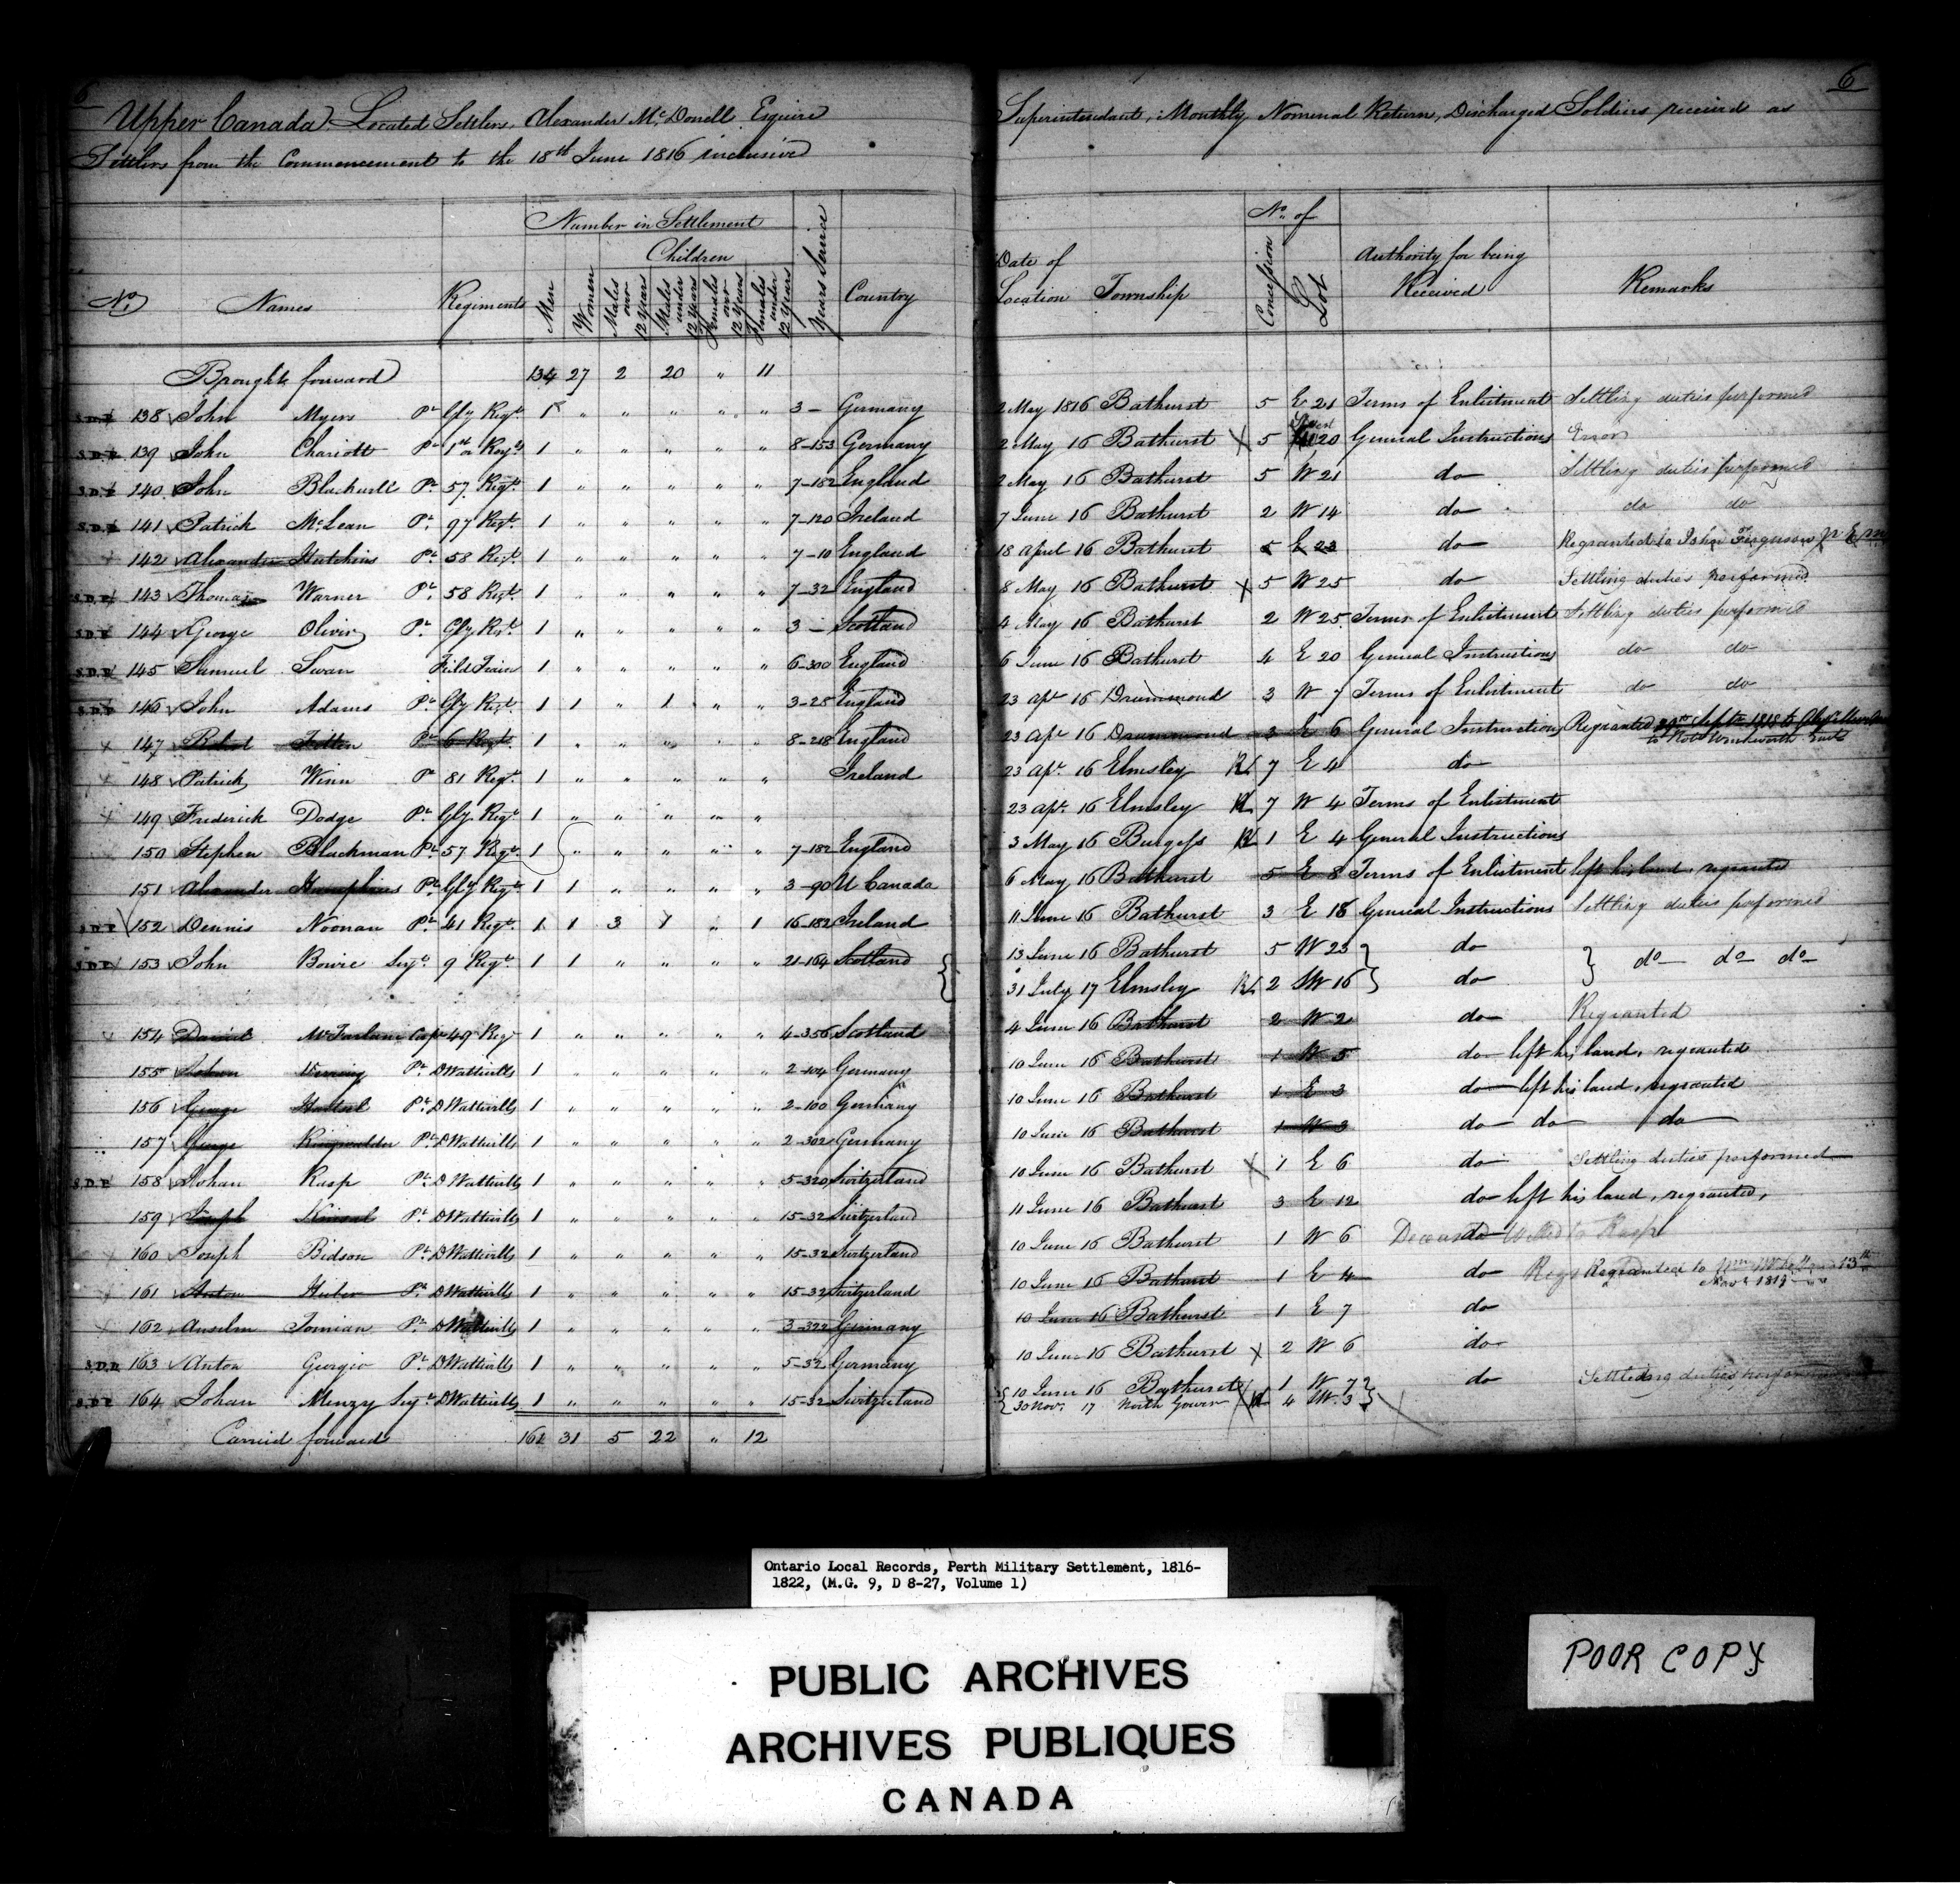 6
6
Upper Canada. Located Settlers, Alexander McDonell Esquire Superintendant, Monthly Nominal Return, Discharged Soldiers received as
Settlers from the Commencement to the 18th June 1816 inclusive
Number in Settlement
Children
No. of
No Names Regiments Men Women Males over 12 Years Males under 12 Years Females over 12 Years Females under 12 Years Years Service Country Date of Location Township Concession Lot Authority for being Received Remarks
Brought forward 134 27 2 20 " 11
S.D.P. 138 John Myers Pt Gly Regt. 1 " " " " " 3 – Germany 2 May 1816 Bathurst 5 E 21 Terms of Enlistment Settling duties performed
S.D.P. 139 John Chariott Pt 1st or Roy 1 " " " " " 8-153 Germany 2 May 16 Bathurst X 5 20 General Instructions Error
S.D.P. 140 John Blackwell Pt 57 Regt. 1 " " " " " 7-182 England 2 May 16 Bathurst 5 W 21 do Settling duties performed
S.D.P. 141 Patrick McLean Pt 97 Regt. 1 " " " " " 7-120 Ireland 7 June 16 Bathurst 2 W 14 do do do
142 Alexander Hutchins Pt 58 Regt. 1 " " " " " 7-10 England 18 April 16 Bathurst 5 E 23 do Regranted to John Ferguson
S.D.P. 143 Thomas Warner Pt. 58 Regt. 1 " " " " " 7-32 England 8 May 16 Bathurst X 5 W 25 do Settling duties performed
S.D.P. 144 George Oliver Pt. Gly Regt. 1 " " " " " 3 – Scotland 4 May 16 Bathurst 2 W 25 Terms of Enlistment Settling duties performed
S.D.P. 145 Samuel Swan Field Train 1 " " " " " 6-300 England 6 June 16 Bathurst 4 E 20 General Instructions do do
S.D.P. 146 John Adams Pt Gly Regt. 1 1 " 1 " " 3-28 England 23 Apl 16 Drummond 3 W 7 Terms of Enlistment do do
147 Robert Totten Pt 6 Regt. 1 " " " " " 8-218 England 23 Apl 16 Drummond 3 E 6 General Instructions Regranted
148 Patrick Winn Pt 81 Regt. 1 " " " " " Ireland 23 Apl. 16 Elmsley 7 E 4 do
149 Frederick Dodge Pt. Gly Regt 1 " " " " " 23 Apl. 16 Elmsley 7 W 4 Terms of Enlistment
150 Stephen Blackman Pt. 57 Regt. 1 " " " " " 7-182 England 3 May 16 Burgess 1 E 4 General Instructions
151 Alexander Humphries Pt. Gly Regt 1 1 " " " " 3-90 U Canada 6 May 16 Bathurst 5 E 8 Terms of Enlistment left his land, regranted
S.D.P. 152 Dennis Noonan Pt. 41 Regt. 1 1 3 1 " 1 16-182 Ireland 11 June 16 Bathurst 3 E 18 General Instructions Settling duties performed
S.D.P. 153 John Bowie Serjt. 9 Regt. 1 1 " " " " 21-164 Scotland 13 June 16 Bathurst 5 W 23 do
31 July 17 Elmsley 2 SW 16 do do do do
154 Daniel McFarlane Corpl 49 Regt 1 " " " " " 4-356 Scotland 4 June 16 Bathurst 2 W 2 do Regranted
155 Pt. DWattvills 1 " " " " " 2-104 Germany 10 June 16 Bathurst 1 W 5 do left his land, regranted
156 George Pt. DWattvills 1 " " " " " 2-100 Germany 10 June 16 Bathurst 1 E 3 do left his land, regranted
157 George Ringwalder Pt. DWattvills 1 " " " " " 2-302 Germany 10 June 16 Bathurst 1 W 3 do do do
S.D.P. 158 Johan Rusp Pt. DWattvills 1 " " " " " 5-320 Switzerland 10 June 16 Bathurst X 1 E 6 do Settling duties performed
159 Joseph Pt. DWattvills 1 " " " " " 15-32 Switzerland 11 June 16 Bathurst 3 E 12 do left his land, regranted,
160 Joseph Bidson Pt. DWattvills 1 " " " " " 15-32 Switzerland 10 June 16 Bathurst 1 W 6 do
161 Anton Huber Pt. DWattvills 1 " " " " " 15-32 Switzerland 10 June 16 Bathurst 1 E 4 do Regranted to
162 Anselm Tomian Pt. DWattvills 1 " " " " " 3-322 Germany 10 June 16 Bathurst 1 E 7 do
S.D.P. 163 Anton Georgio Pt. DWattvills 1 " " " " " 5-32 Germany 10 June 16 Bathurst X 2 W 6 do
S.D.P. 164 Johan Menzy Serjt. DWattvills 1 " " " " " 15-32 Switzerland 10 June 16 Bathurst 1 W 7 do Settling duties performed
30 Nov. 17 North Gower 4 SW. 3
Carried forward 161 31 5 22 " 12
Ontario Local Records, Perth Military Settlement, 1816-
1822, (M.G. 9, D 8-27, Volume 1)
PUBLIC ARCHIVES
ARCHIVES PUBLIQUES
CANADA
POOR COPY